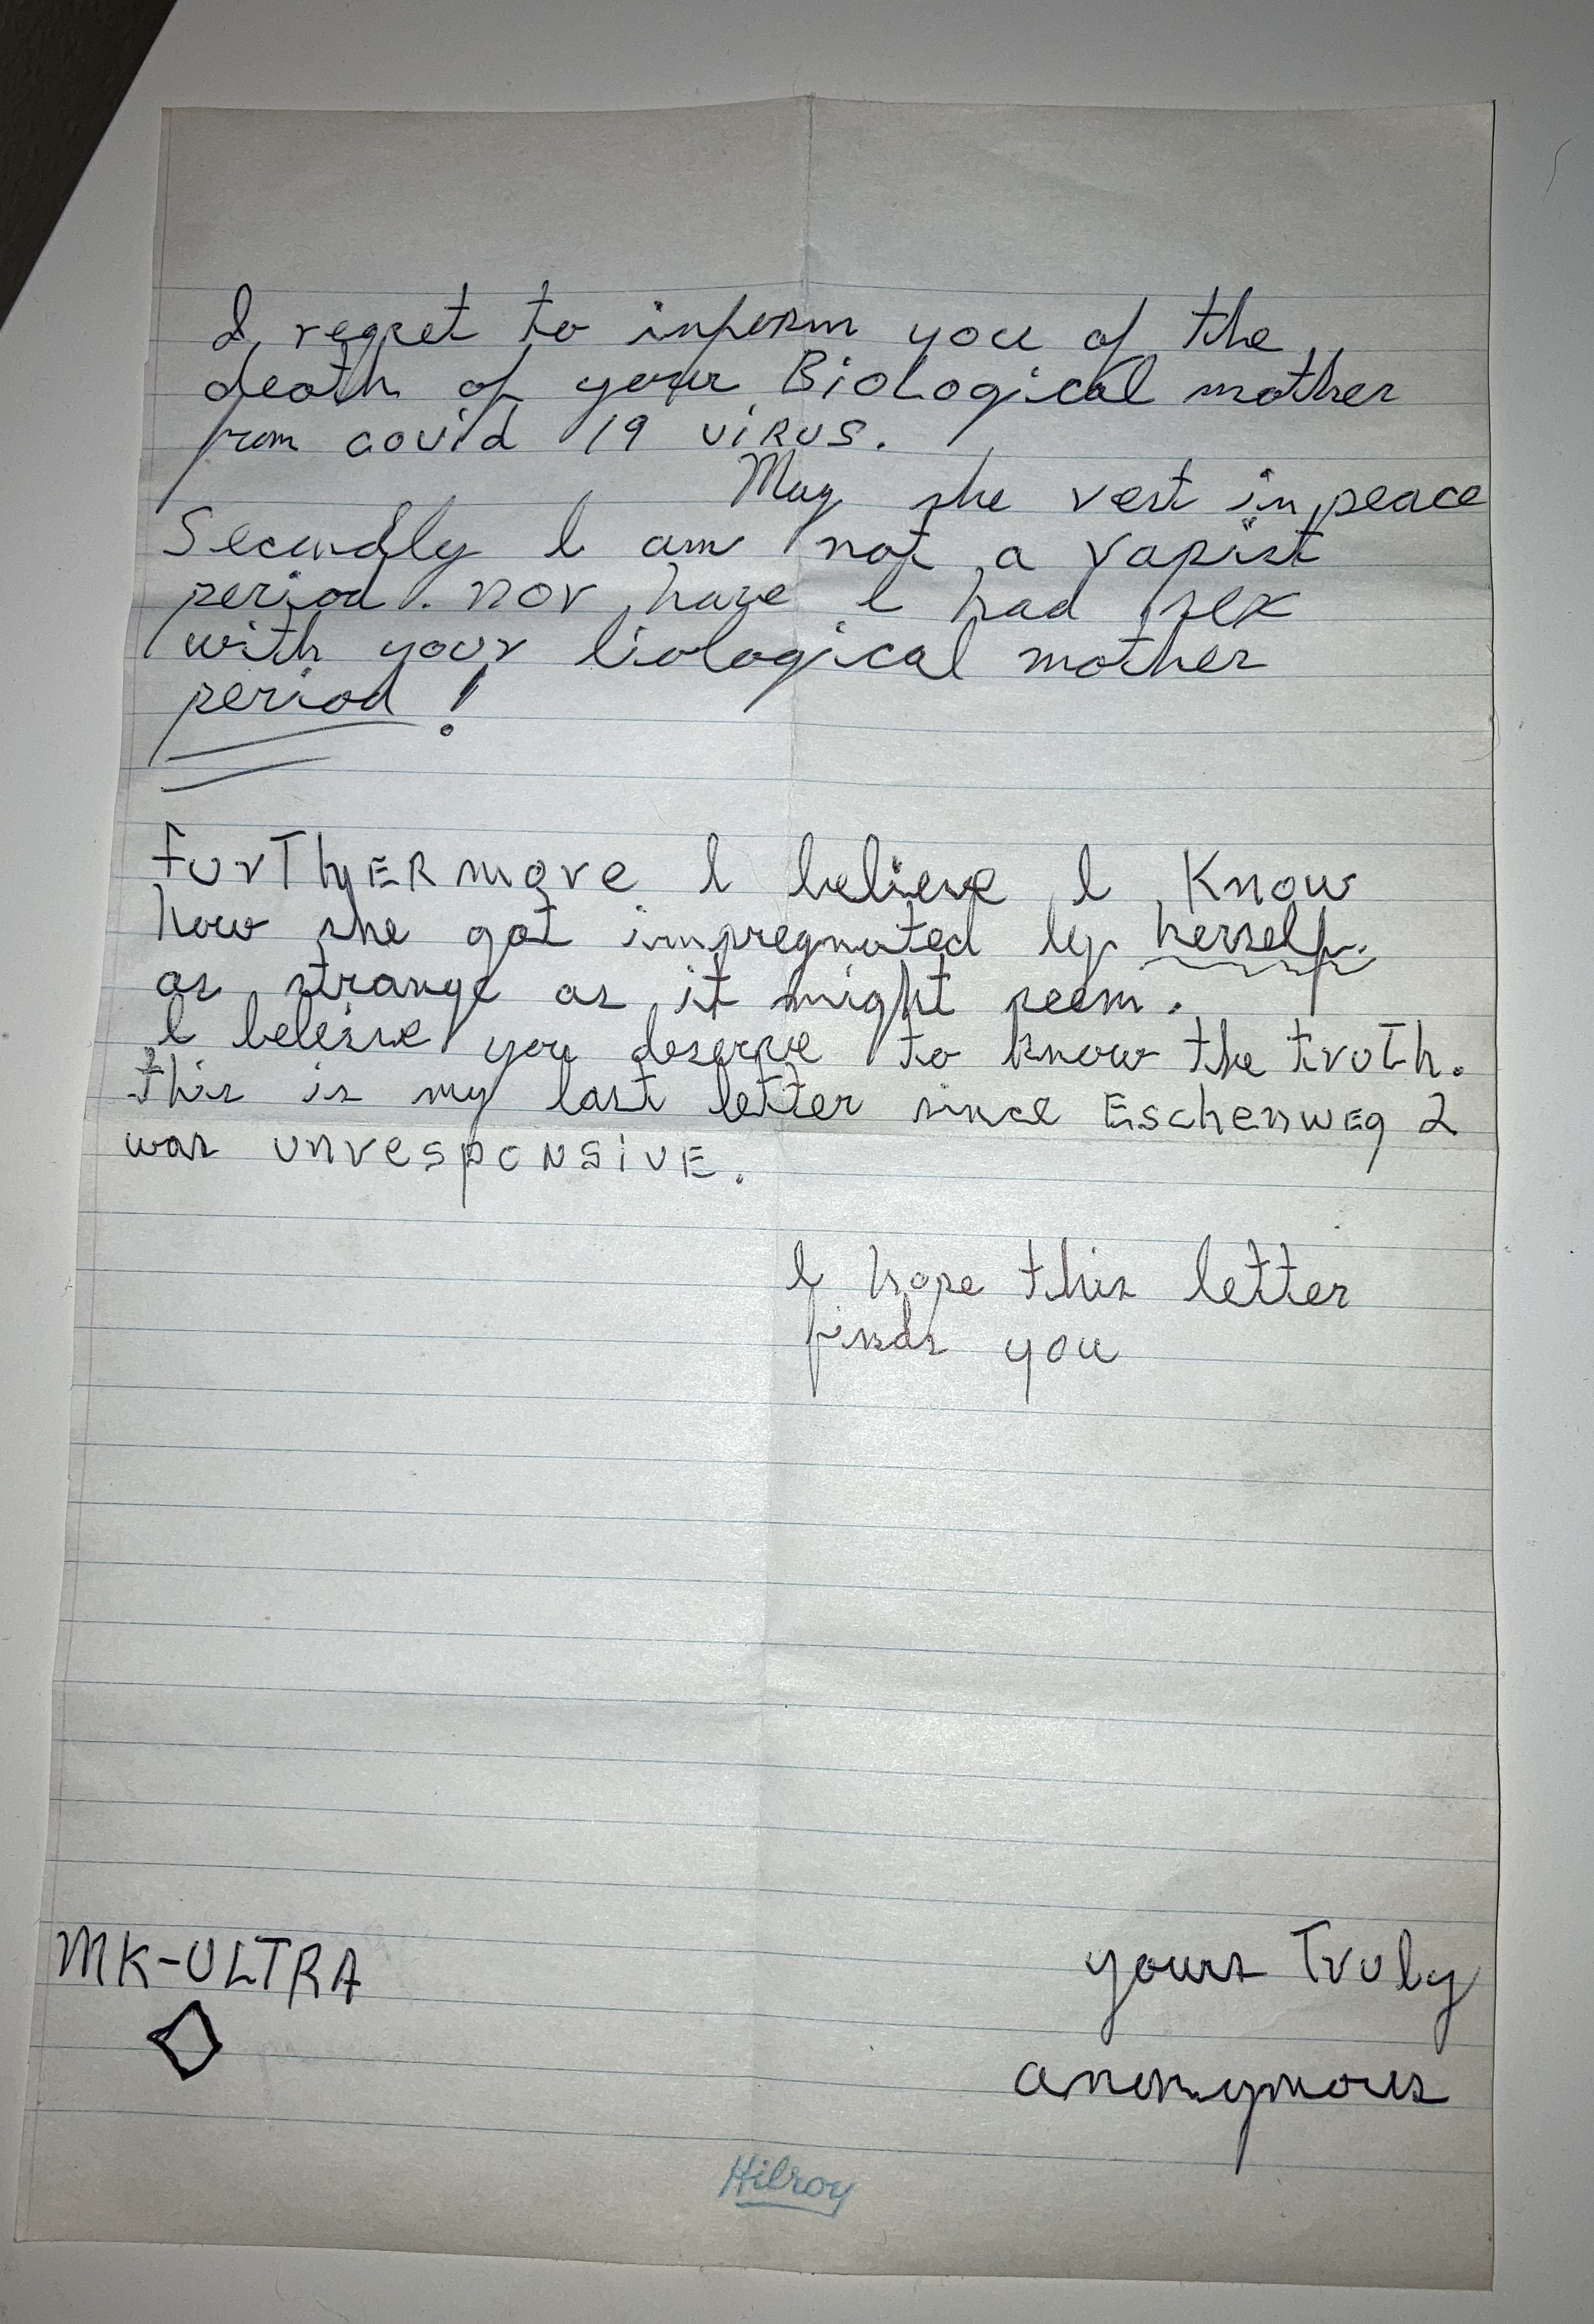 I regret to inform you of the
death of your Biological mother
from covid 19 viRUS.
May she rest in peace
Secondly I am not a rapist
period. nor have I had sex
with your biological mother
period!
furThERmore I believe I Know
how she got impregnated by herself.
as strange as it might seem.
I beleive you deserve to know the truTh.
this is my last letter since Eschenweg 2
was unresponsivE.
I hope this letter
finds you
MK-ULTRA
yours Truly
anonymous
Hilroy